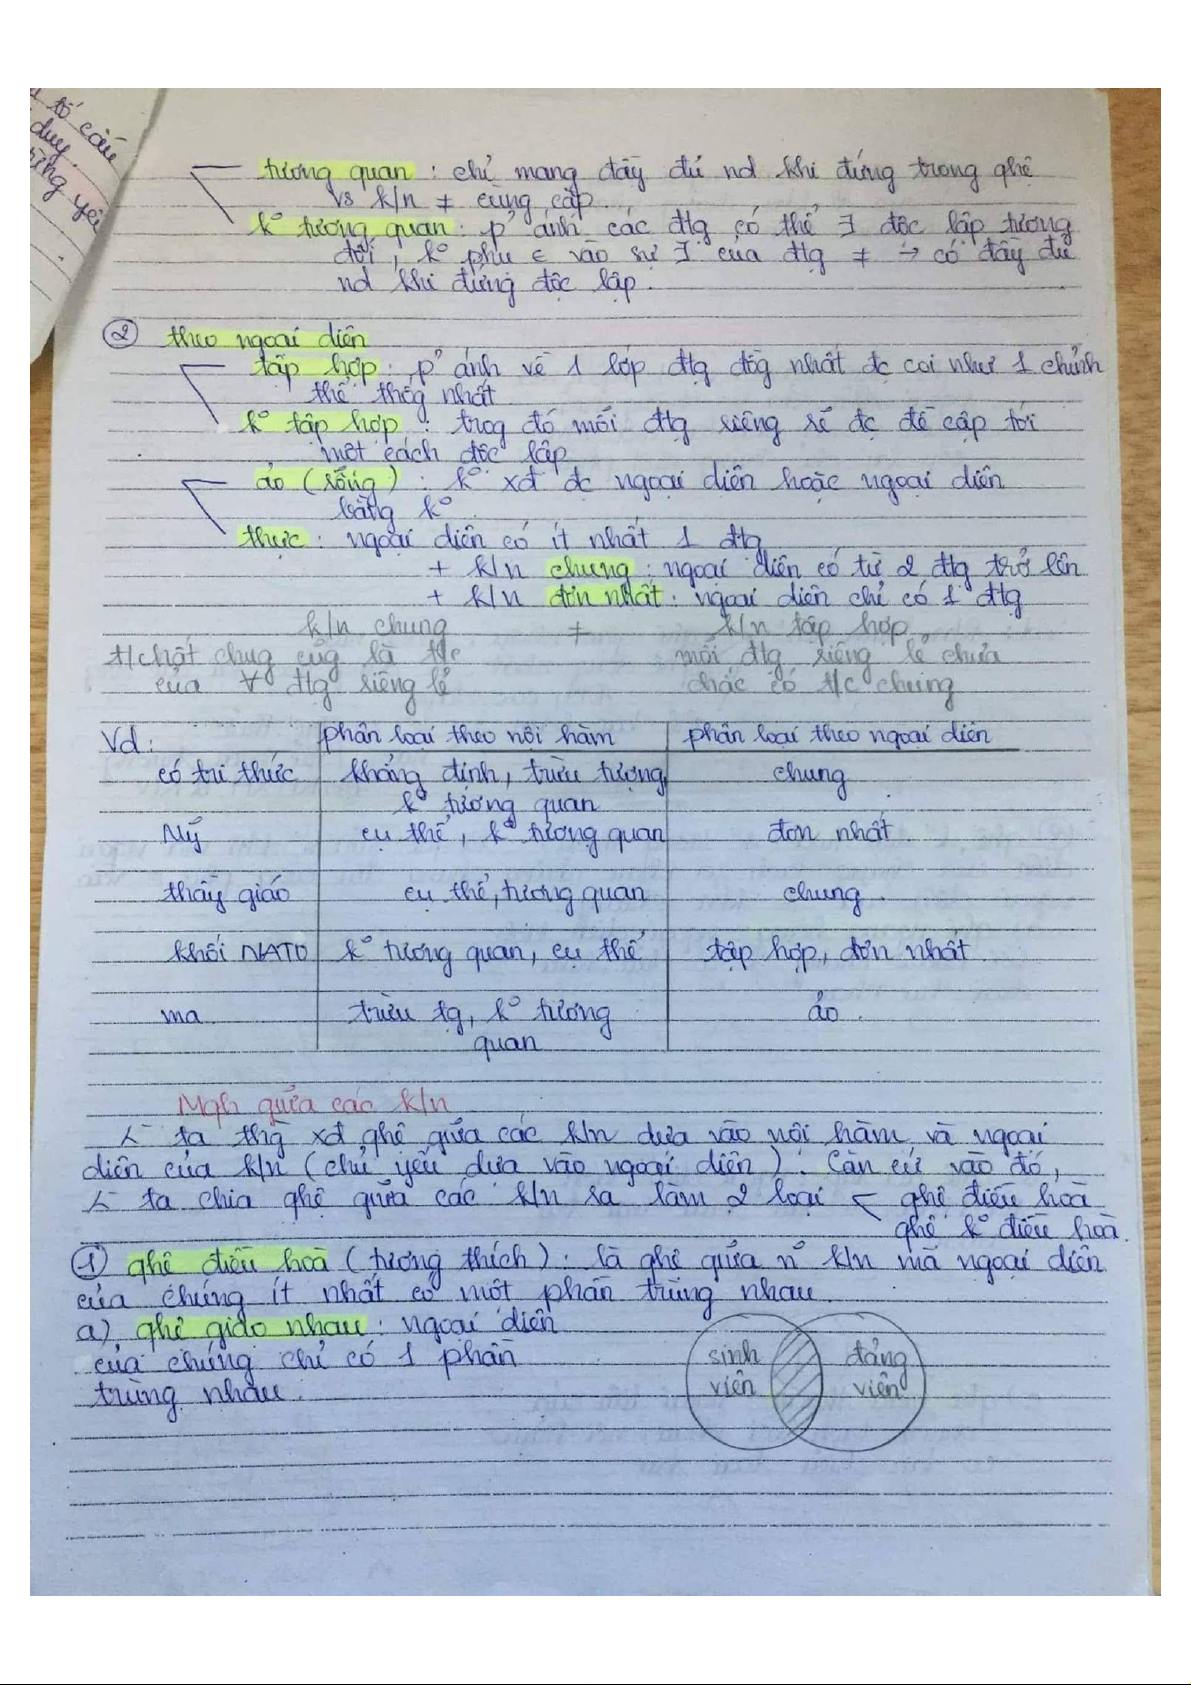 tố cấu
duy.
riêng yếu
tương quan : chỉ mang đầy đủ nd khi đứng trong qhệ
vs k/n ≠ cùng cấp.
k° tương quan : p° ánh các đtg có thể ∃ độc lập tương
đối, k° phụ ∈ vào sự ∃ của đtg ≠ → có đầy đủ
nd khi đứng độc lập.
② theo ngoại diên
tập hợp : p° ánh về 1 lớp đtg đồg nhất đc coi như 1 chỉnh
thể thốg nhất
k° tập hợp : trog đó mỗi đtg riêng rẽ đc đề cập tới
một cách độc lập
ảo (rỗng) : k° xđ đc ngoại diên hoặc ngoại diên
bằng k°
thực : ngoại diên có ít nhất 1 đtg
+ k/n chung : ngoại diên có từ 2 đtg trở lên
+ k/n đơn nhất : ngoại diên chỉ có 1 đtg
k/n chung ≠ k/n tập hợp
t/chất chug cũg là t/c mỗi đtg riêng lẻ chưa
của ∀ đtg riêng lẻ chắc có t/c chung
Vd: phân loại theo nội hàm phân loại theo ngoại diên
có tri thức khẳng định, trừu tượng, chung
k° tương quan
Mỹ cụ thể, k° tương quan đơn nhất
thầy giáo cụ thể, tương quan chung
khối NATO k° tương quan, cụ thể tập hợp, đơn nhất
ma trừu tg, k° tương ảo
quan
Mqh giữa các k/n
ta thg xđ qhệ giữa các k/n dựa vào nội hàm và ngoại
diên của k/n (chủ yếu dựa vào ngoại diên). Căn cứ vào đó,
ta chia qhệ giữa các k/n ra làm 2 loại < qhệ điều hoà
qhệ k° điều hoà.
① qhệ điều hoà (tương thích) : là qhệ giữa n° k/n mà ngoại diên
của chúng ít nhất có một phần trùng nhau
a) qhệ giao nhau : ngoại diên
của chúng chỉ có 1 phần
trùng nhau.
sinh đảng
viên viên